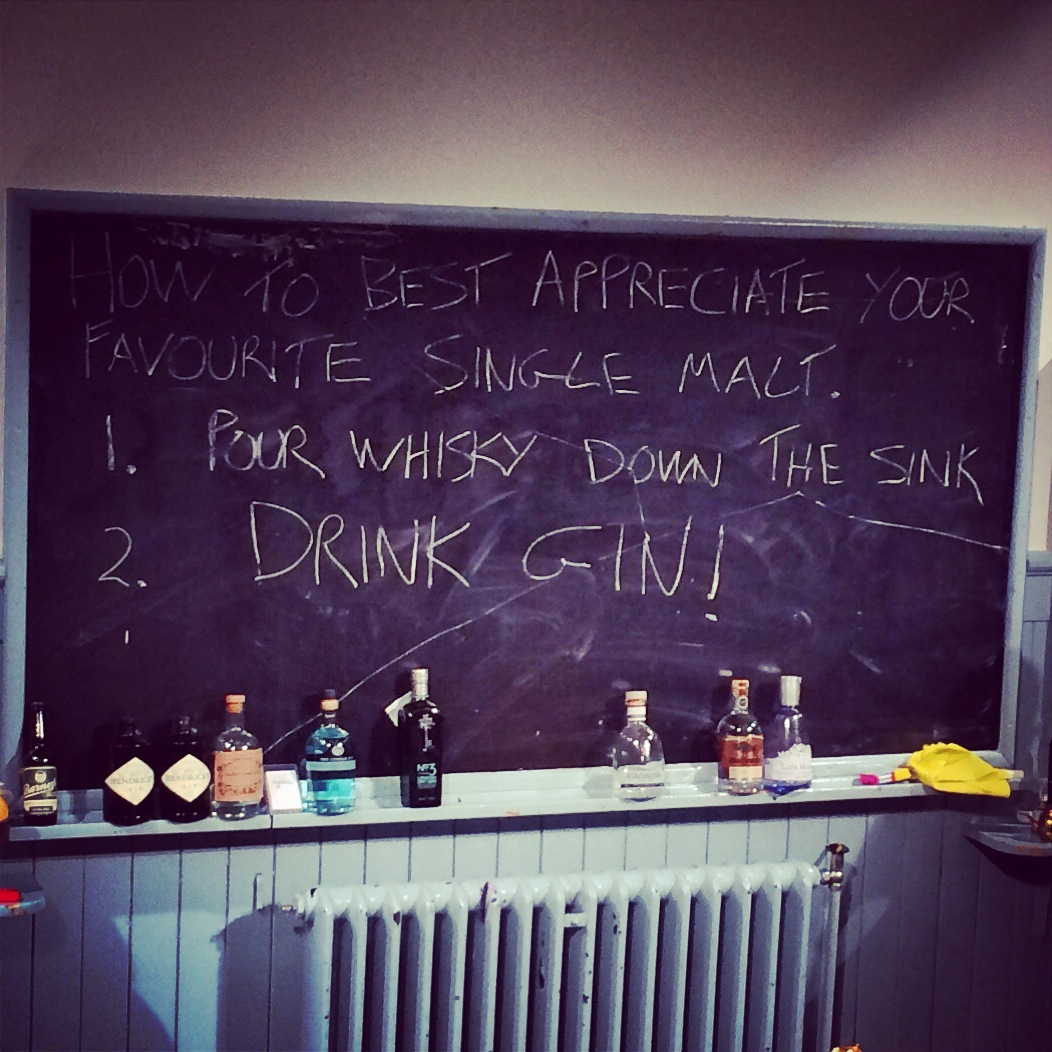 HOW TO BEST APPRECIATE YOUR
FAVOURITE SINGLE MALT.
1. POUR WHISKY DOWN THE SINK
2. DRINK GIN!
HENDRICK'S
GIN
HENDRICK'S
GIN
Nº3